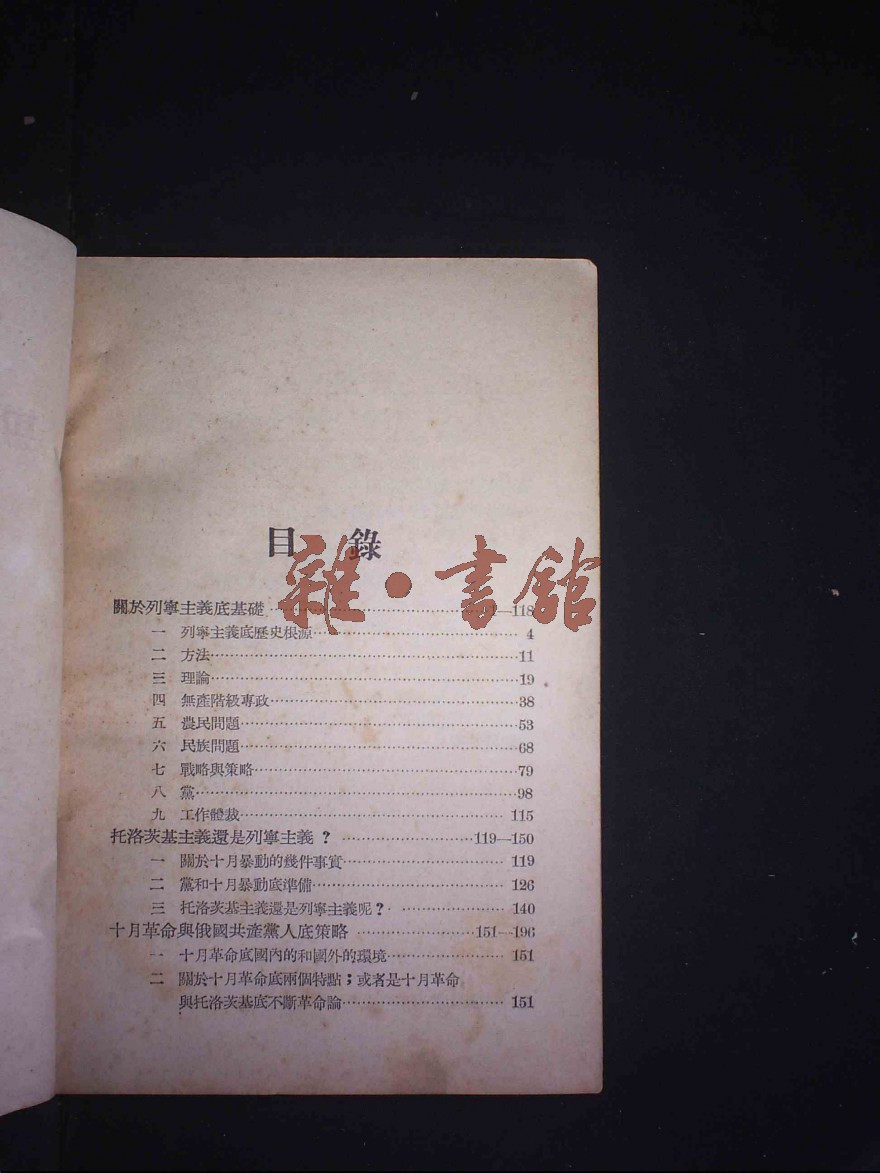 目錄
雜·書館
關於列寧主義底基礎 1—118
一 列寧主義底歷史根源 4
二 方法 11
三 理論 19
四 無產階級專政 38
五 農民問題 53
六 民族問題 68
七 戰略與策略 79
八 黨 98
九 工作體裁 115
托洛茨基主義還是列寧主義? 119—150
一 關於十月暴動的幾件事實 119
二 黨和十月暴動底準備 126
三 托洛茨基主義還是列寧主義呢? 140
十月革命與俄國共產黨人底策略 151—196
一 十月革命底國內的和國外的環境 151
二 關於十月革命底兩個特點;或者是十月革命
與托洛茨基底不斷革命論 151